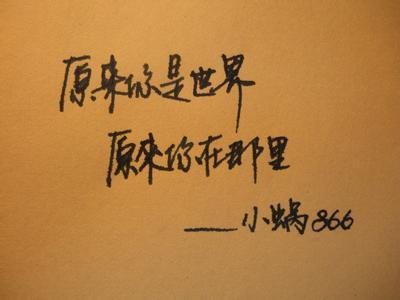 原來你是世界
原來你在那里
——小蜗866